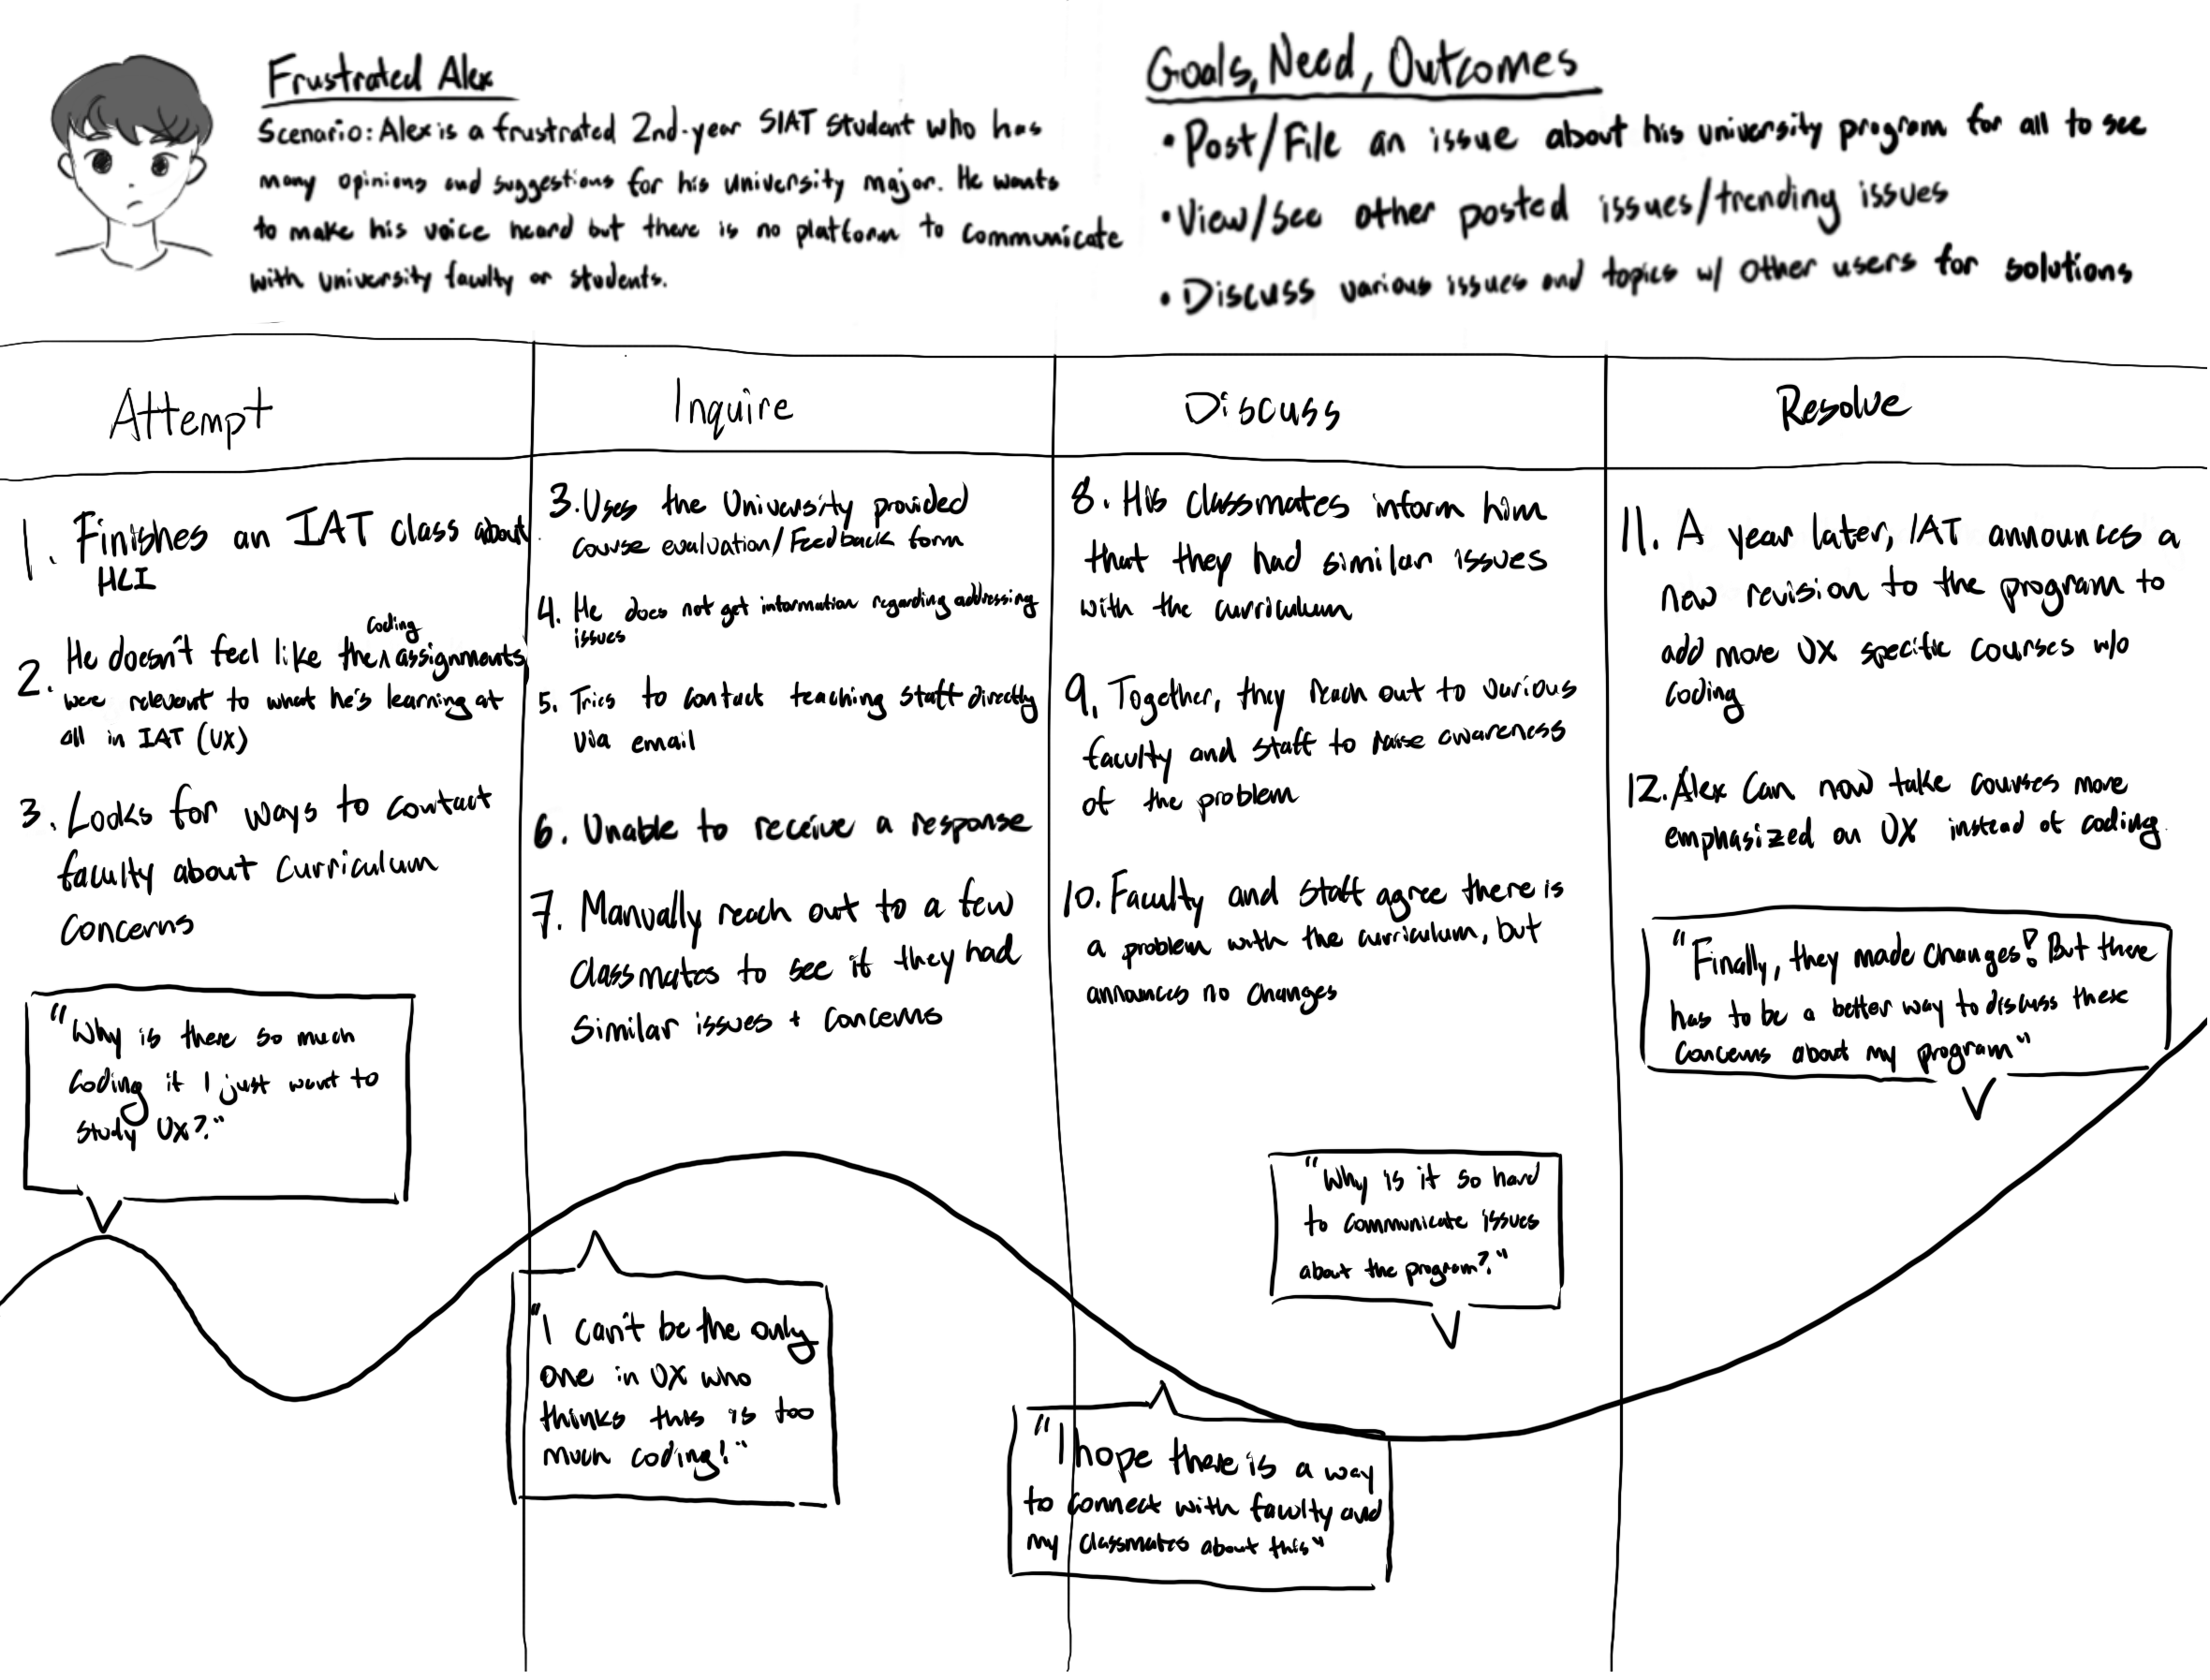 Frustrated Alex
Scenario: Alex is a frustrated 2nd-year SIAT student who has
many opinions and suggestions for his university major. He wants
to make his voice heard but there is no platform to communicate
with university faculty or students.
Goals, Need, Outcomes
• Post/File an issue about his university program for all to see
• View/See other posted issues/trending issues
• Discuss various issues and topics w/ other users for solutions
Attempt
1. Finishes an IAT class about
HCI
2. He doesn't feel like the ^ coding assignments
were relevant to what he's learning at
all in IAT (UX)
3. Looks for ways to contact
faculty about curriculum
concerns
"Why is there so much
coding if I just want to
study UX?"
Inquire
3. Uses the University provided
course evaluation/Feedback form
4. He does not get information regarding addressing
issues
5. Tries to contact teaching staff directly
via email
6. Unable to receive a response
7. Manually reach out to a few
classmates to see if they had
similar issues + concerns
"I can't be the only
one in UX who
thinks this is too
much coding!"
Discuss
8. His classmates inform him
that they had similar issues
with the curriculum
9. Together, they reach out to various
faculty and staff to raise awareness
of the problem
10. Faculty and staff agree there is
a problem with the curriculum, but
announces no changes
"Why is it so hard
to communicate issues
about the program?"
"I hope there is a way
to connect with faculty and
my classmates about this"
Resolve
11. A year later, IAT announces a
new revision to the program to
add more UX specific courses w/o
coding
12. Alex can now take courses more
emphasized on UX instead of coding.
"Finally, they made changes! But there
has to be a better way to discuss these
concerns about my program"